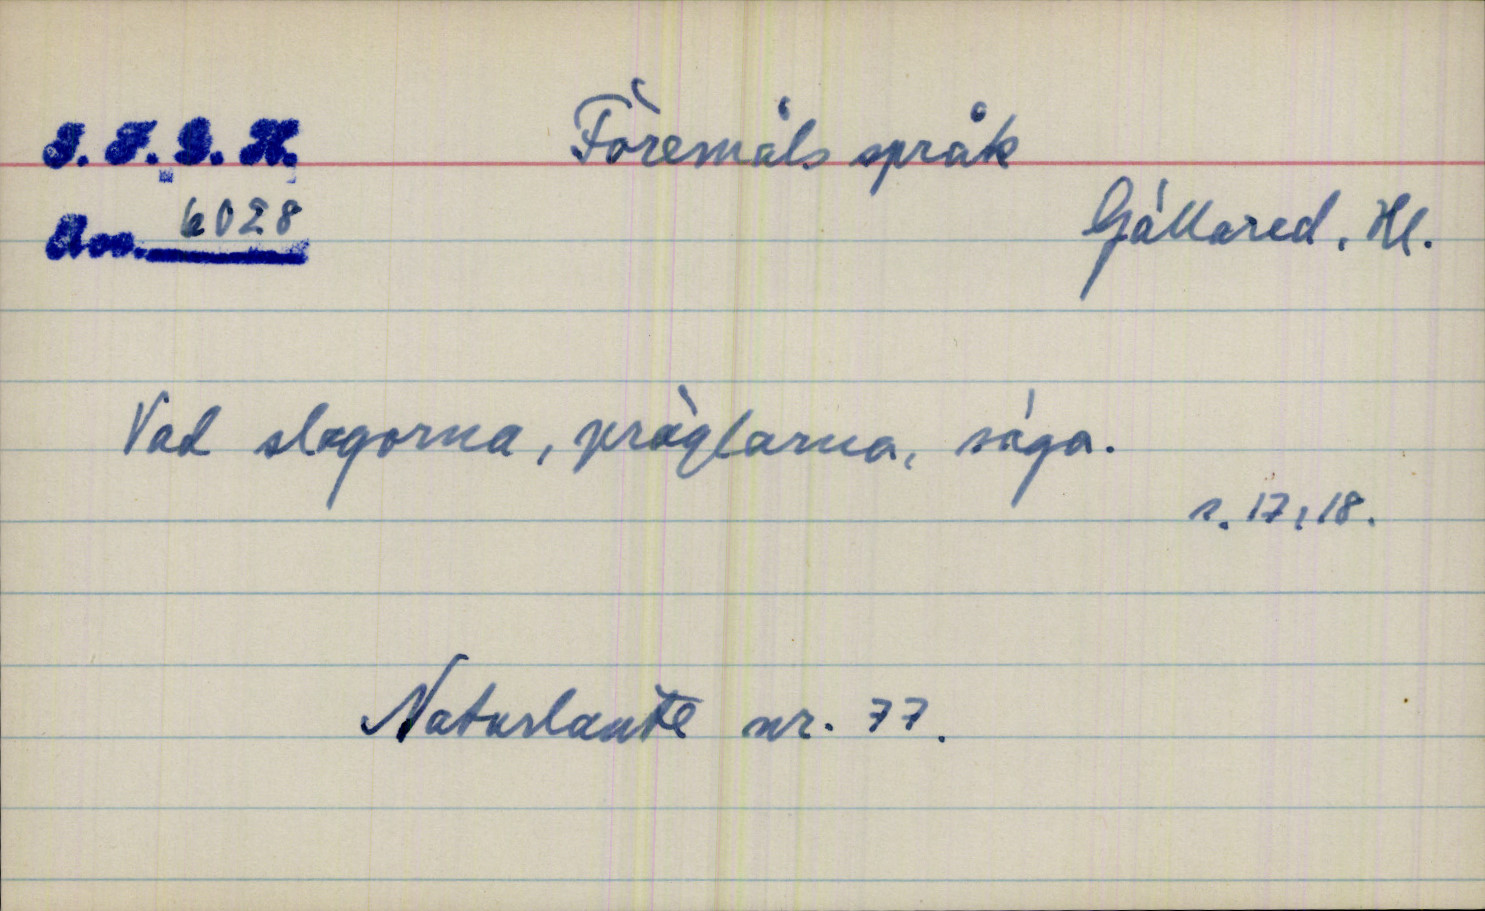 I. F. G. H.
Föremåls språk
Acc. 6028
Gällared, Hl.
Vad slagorna, präglarna, säga.
s. 17, 18.
Naturlaute nr. 77.